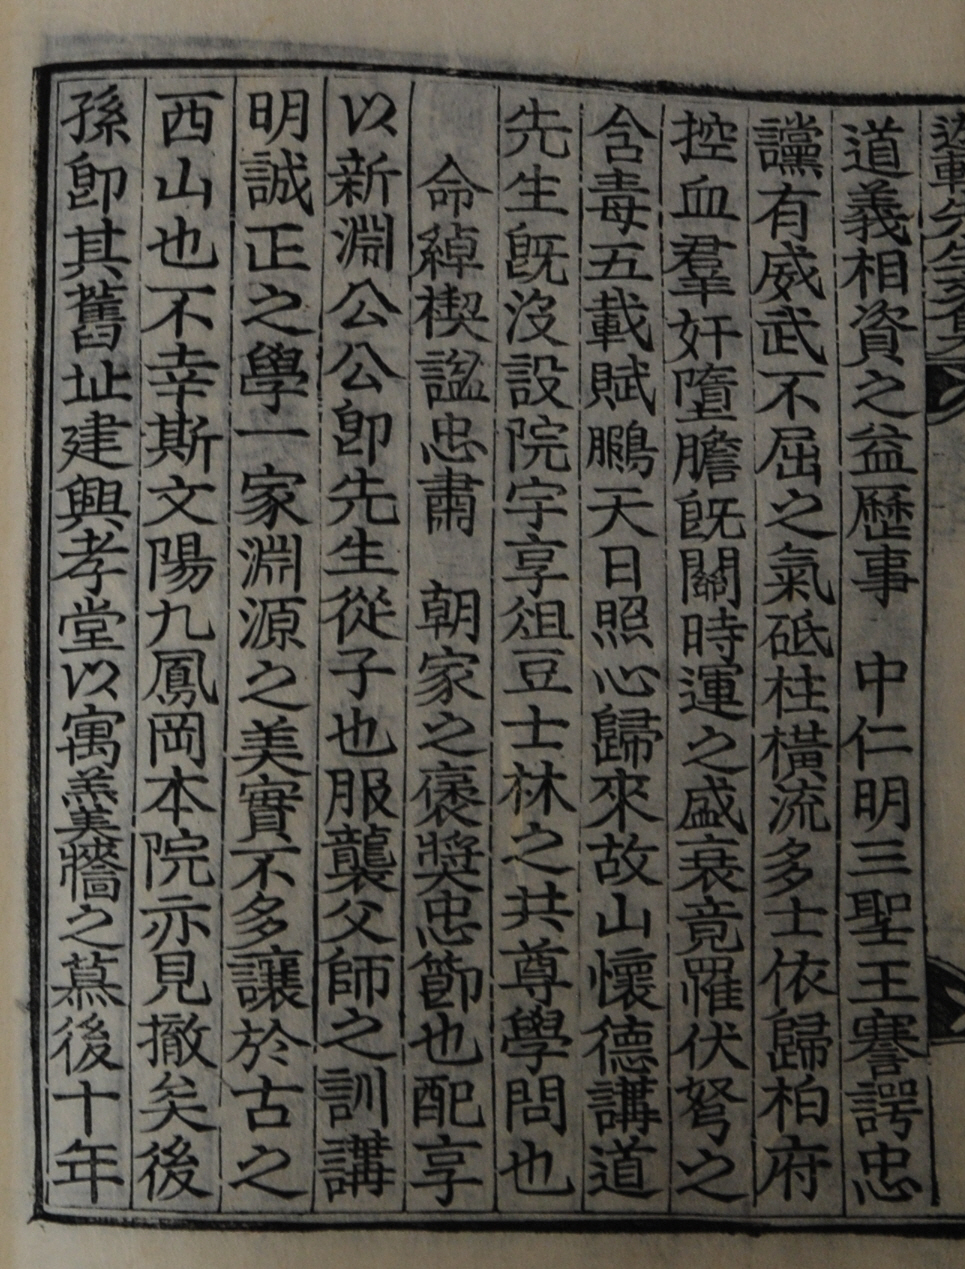 道義相資之益歷事 中仁明三聖王謇諤忠
讜有威武不屈之氣砥柱橫流多士依歸柏府
控血羣奸墮膽旣關時運之盛衰竟罹伏弩之
含毒五載賦鵩天日照心歸來故山懷德講道
先生旣沒設院宇享俎豆士林之共尊學問也
命綽楔諡忠肅 朝家之褒奬忠節也配享
以新淵公公卽先生從子也服襲父師之訓講
明誠正之學一家淵源之美實不多讓於古之
西山也不幸斯文陽九鳳岡本院亦見撤矣後
孫卽其舊址建興孝堂以寓羹墻之慕後十年